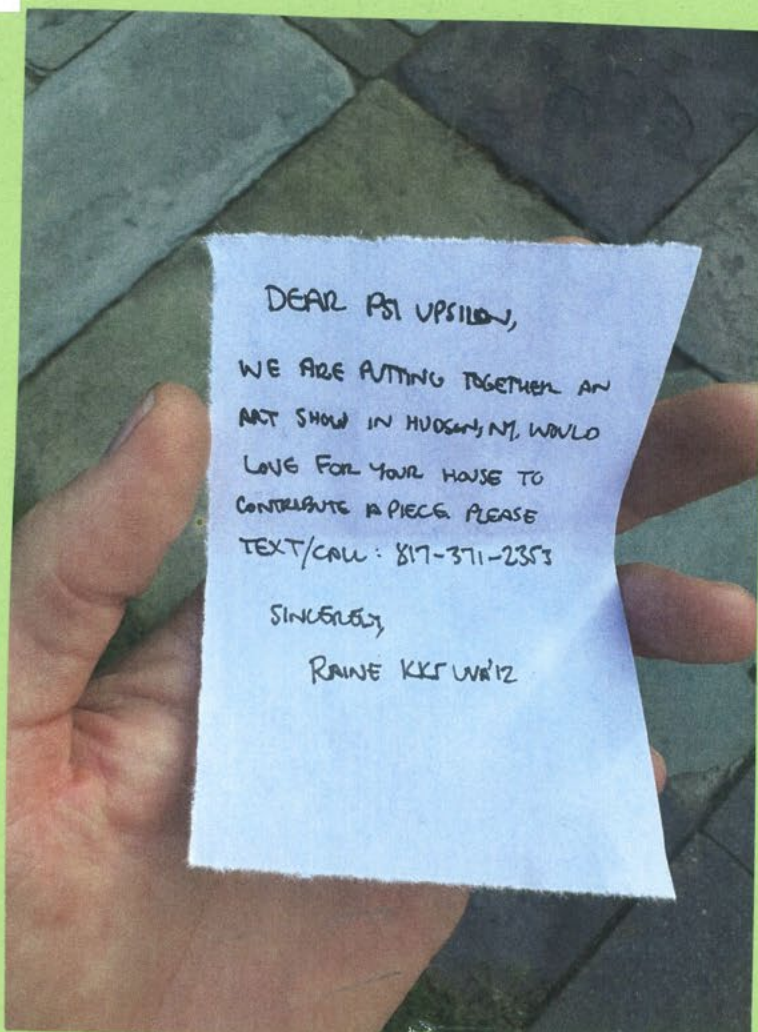 DEAR PSI UPSILON,
WE ARE PUTTING TOGETHER AN
ART SHOW IN HUDSON, NY. WOULD
LOVE FOR YOUR HOUSE TO
CONTRIBUTE A PIECE. PLEASE
TEXT/CALL: 817-371-2353
SINCERELY,
RAINE KKΓ UVA'12